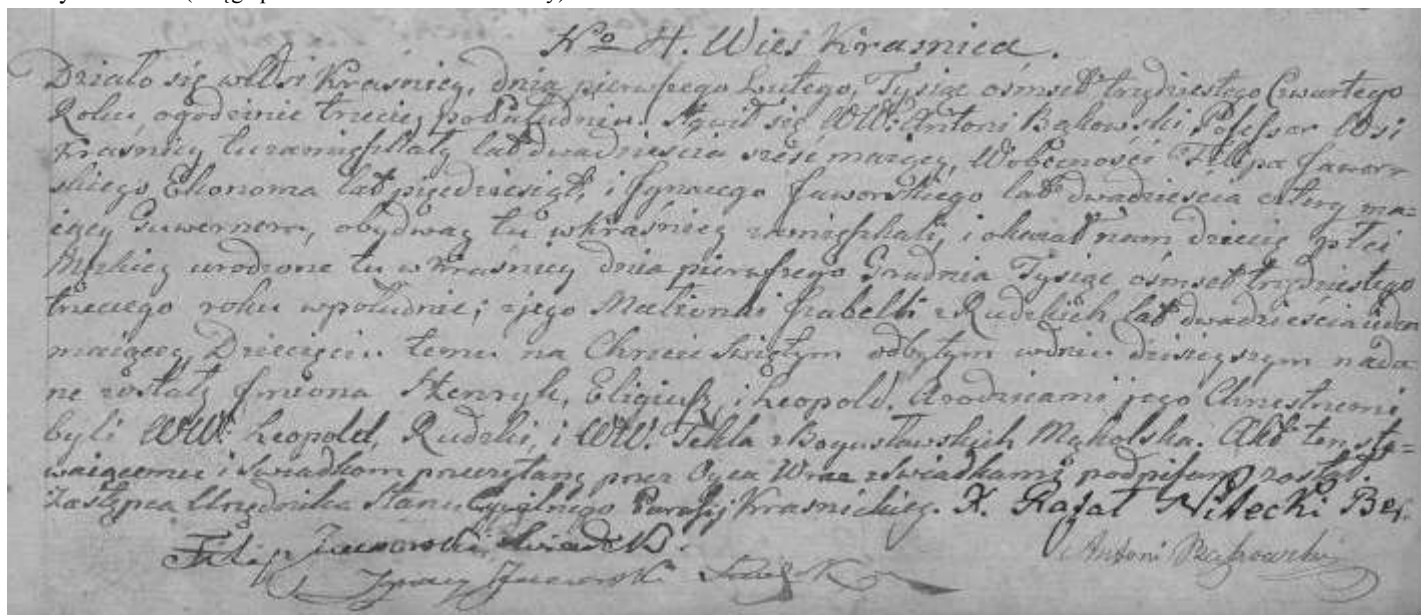 No 4. Wieś Kraśnica.
Działo się w Wsi Kraśnicy, dnia pierwszego Lutego, Tysiąc ośmset trzydziestego Czwartego
Roku, o godzinie trzeciej po południu. Stawił się WW: Antoni Bąkowski Possessor Wsi
Kraśnicy tu zamieszkały lat dwadzieścia sześć maiący, w obecności Filipa Jawor=
skiego, Ekonoma lat pięćdziesiąt, i Ignacego Jaworskiego lat dwadzieścia cztery ma=
iący Guwernera, obydway tu w Kraśnicy zamieszkali, i okazał nam dziecię płci
Męzkiey urodzone tu w Kraśnicy dnia pierwszego Grudnia Tysiąc ośmset trzydziestego
trzeciego roku w południe; z jego Małżonki Izabelli z Rudzkich lat dwadzieścia ieden
maiącey, Dziecięciu temu na Chrzcie Swiętym odbytym w dniu dzisieyszym nada
ne zostały Imiona Henryk, Eligiusz, i Leopold. A rodzicami jego Chrzestnemi
byli WW: Leopold, Rudzki, i WW. Tekla z Bogusławskich Mąkolska. Akt ten sta=
waiącemu i Swiadkom przeczytany przez Oyca Wraz z Swiadkami podpisany został.
Zastępca Urzędnika Stanu Cywilnego Parafij Krasnickiey. X. Rafał Nitecki Ber.
Filip Jaworski Swiadek. Antoni Bąkowski
Ignacy Jaworski Swiadek